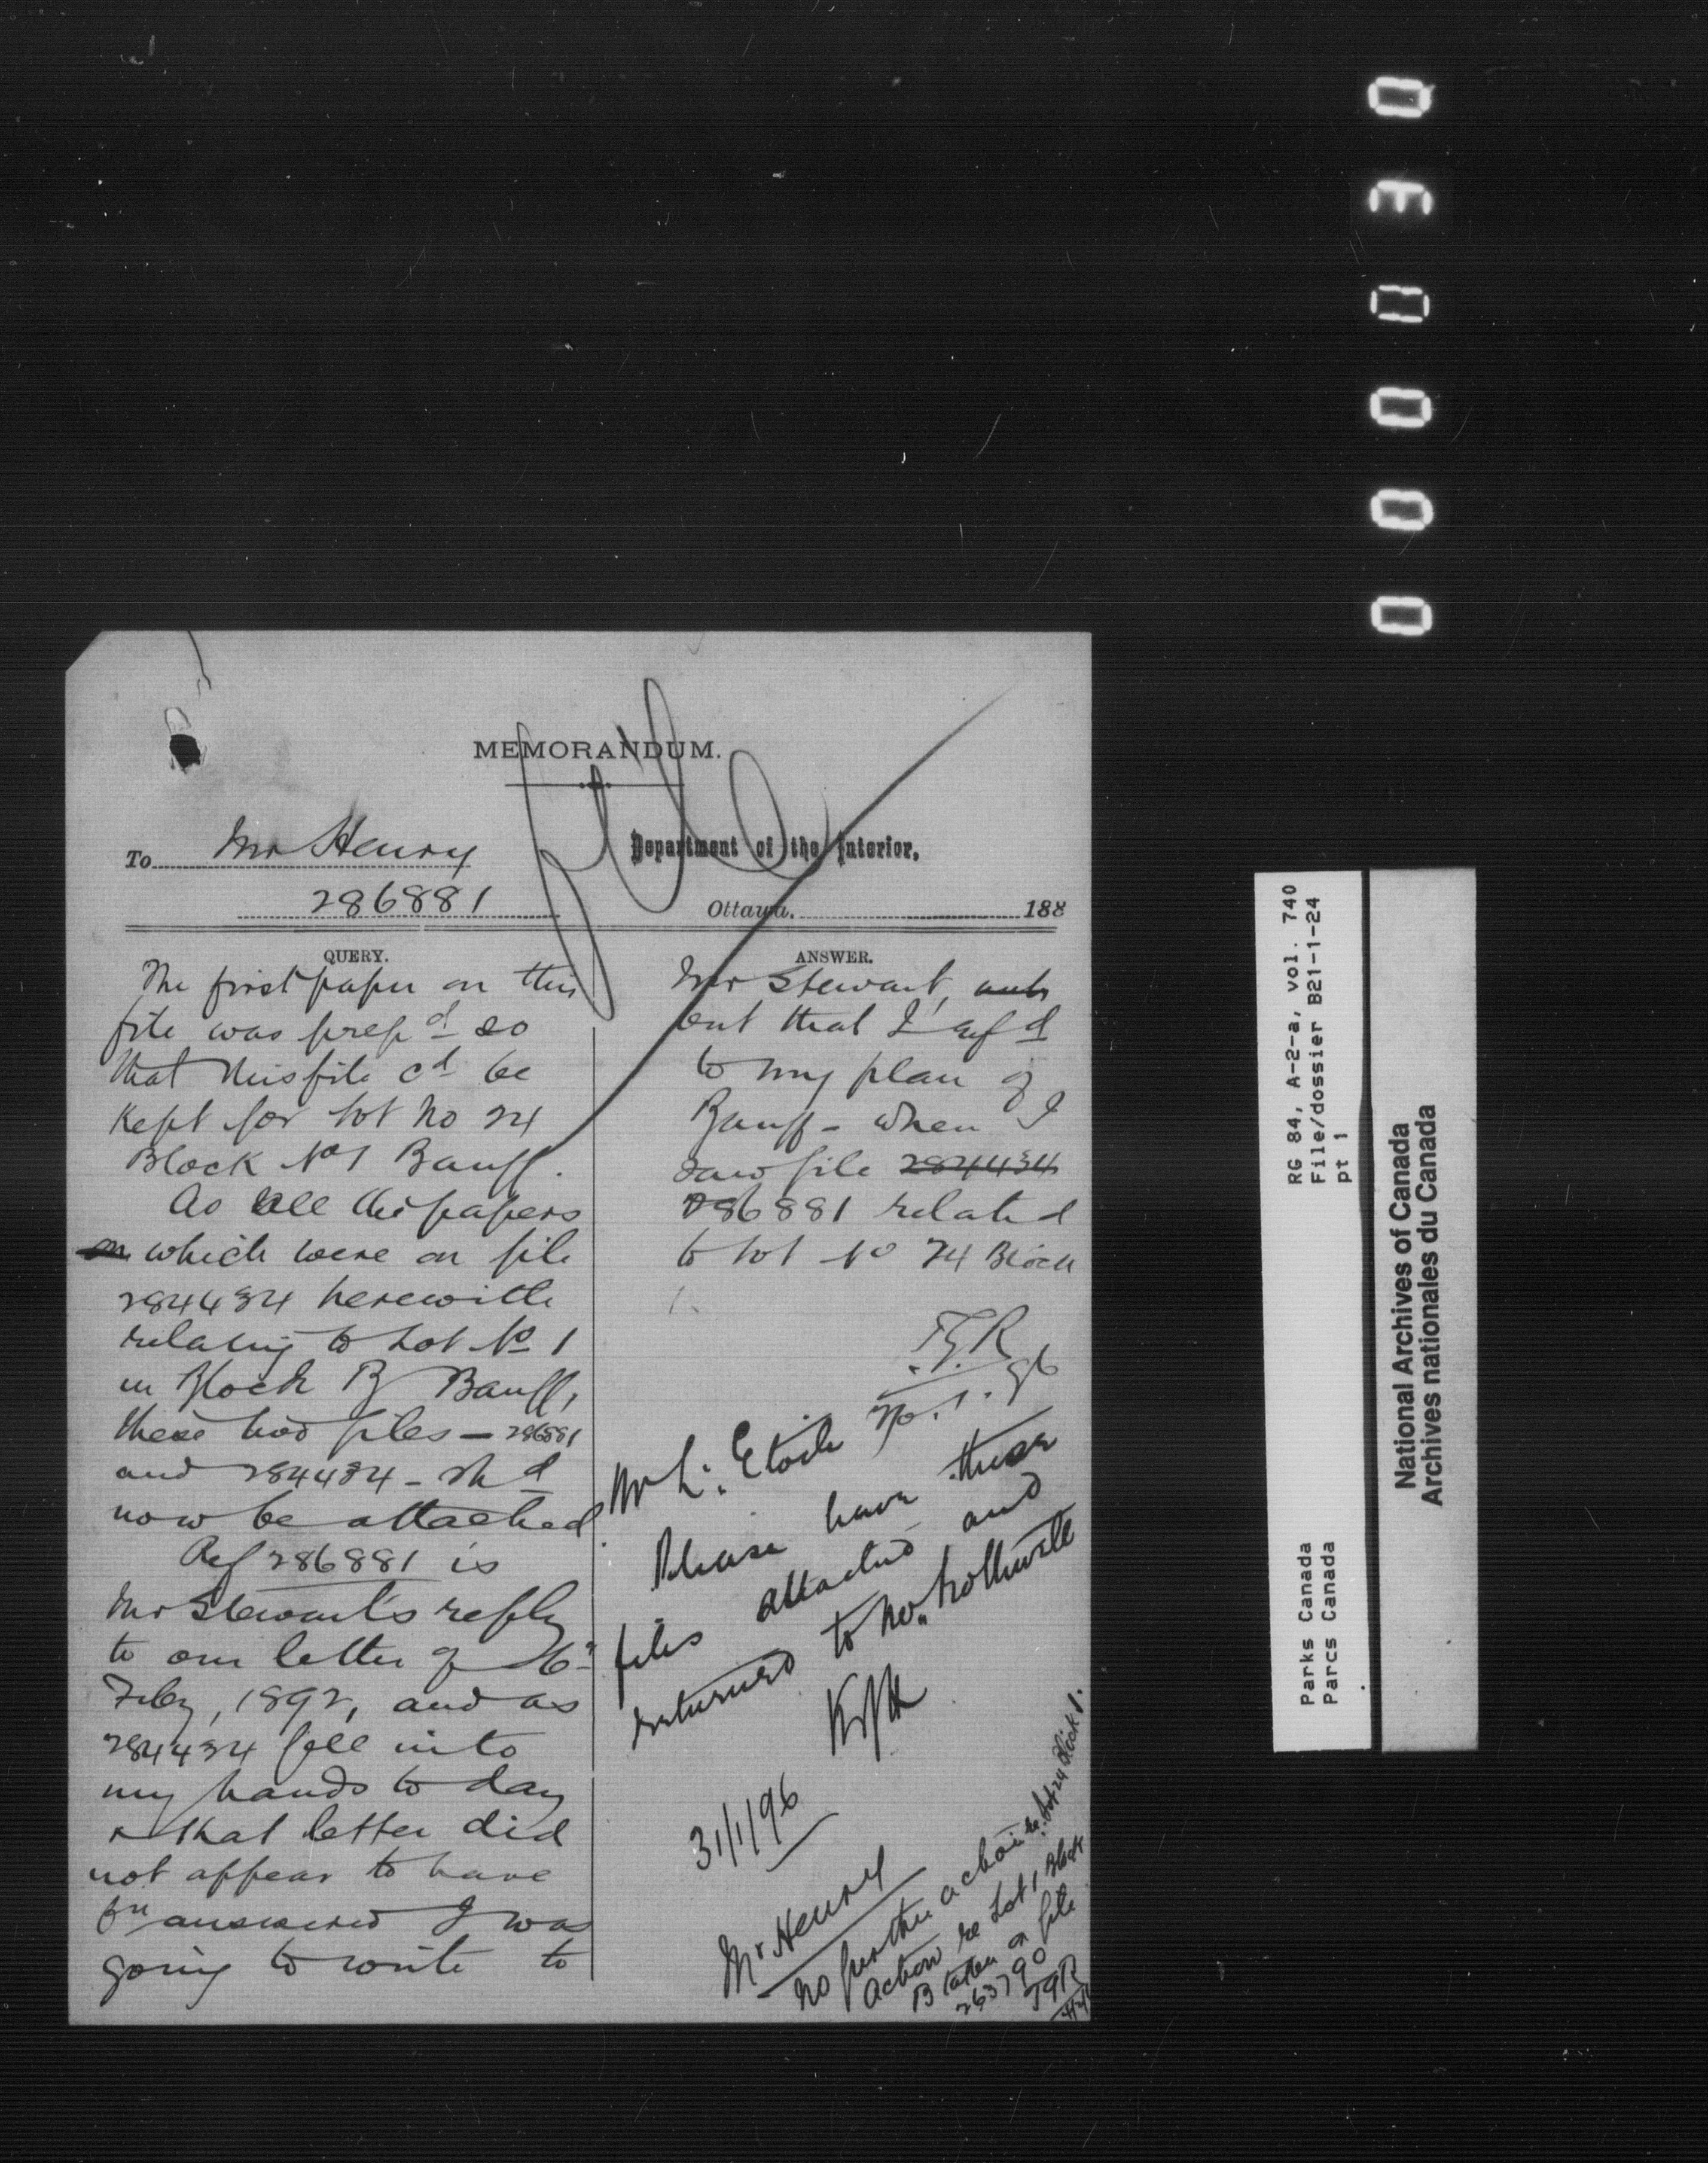 MEMORANDUM.
To Mr Henry
286881
Department of the Interior,
Ottawa, 188
QUERY.
The first paper on this
file was prepd so
that this file cd be
kept for lot No 24
Block No 1 Banff.
As all the papers
which were on file
284434 herewith
relating to Lot No 1
in Block B Banff,
these two files — 286881
and 284434 - shd
now be attached
Ref 286881 is
Mr Stewart's reply
to our letter of 6
Feby, 1892, and as
284434 fell into
my hands to day
& that letter did
not appear to have
bn answered I was
going to write to
ANSWER.
Mr Stewart,
but that I refd
to my plan of
Banff - when I
saw file 284434
286881 related
to lot No 24 Block
1.
T.G.R
96
Mr L'Etoile
Please have these
files attached and
returned to Mr Rothwell
31/1/96
Mr Henry
No further action re Lot 24 Block 1.
Action re Lot 1 Block
B taken on file
263790
TGR
0 3 0 0 0 0
RG 84, A-2-a, vol. 740
File/dossier B21-1-24
pt 1
Parks Canada
Parcs Canada
National Archives of Canada
Archives nationales du Canada